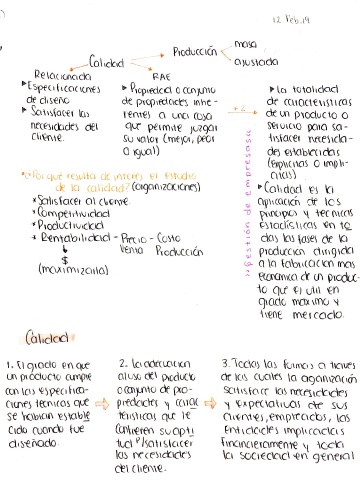 12 Feb. 19
Calidad → Producción → masa
ajustada
Relacionada
▸Especificaciones
de diseño
▸Satisfacer las
necesidades del
cliente.
RAE
▸Propiedad o conjunto
de propiedades inhe-
rentes a una cosa
que permite juzgar
su valor (mejor, peor
o igual)
▸la totalidad
de características
de un producto o
servicio para sa-
tisfacer necesida-
des establecidas
(explícitas o implí-
citas)
▸Calidad es la
aplicación de los
principios y tecnicas
Estadísticas en to
das las fases de la
producción dirigida
a la fabricación mas
economica de un produc-
to que es util en
grado maximo y
tiene mercado.
Gestión de empresas
¿Por qué resulta de interes el estudio
de la calidad? (organizaciones)
*Satisfacer al cliente
*Competitividad
*Productividad
*Rentabilidad - Precio - Costo
Venta Producción
$
(maximizarla)
Calidad
1. El grado en que
un producto cumple
con las especifica-
ciones tecnicas que
se habian estable
cido cuando fue
diseñado.
2. la adecuación
al uso del producto
o conjunto de pro-
piedades y carac
terísticas que le
confieren su apti
tud p/satisfacer
las necesidades
del cliente.
3. Todas las formas a traves
de las cuales la organización
satisface las necesidades
y expectativas de sus
clientes, empleados, las
entidades implicadas
financieramente y toda
la sociedad en general